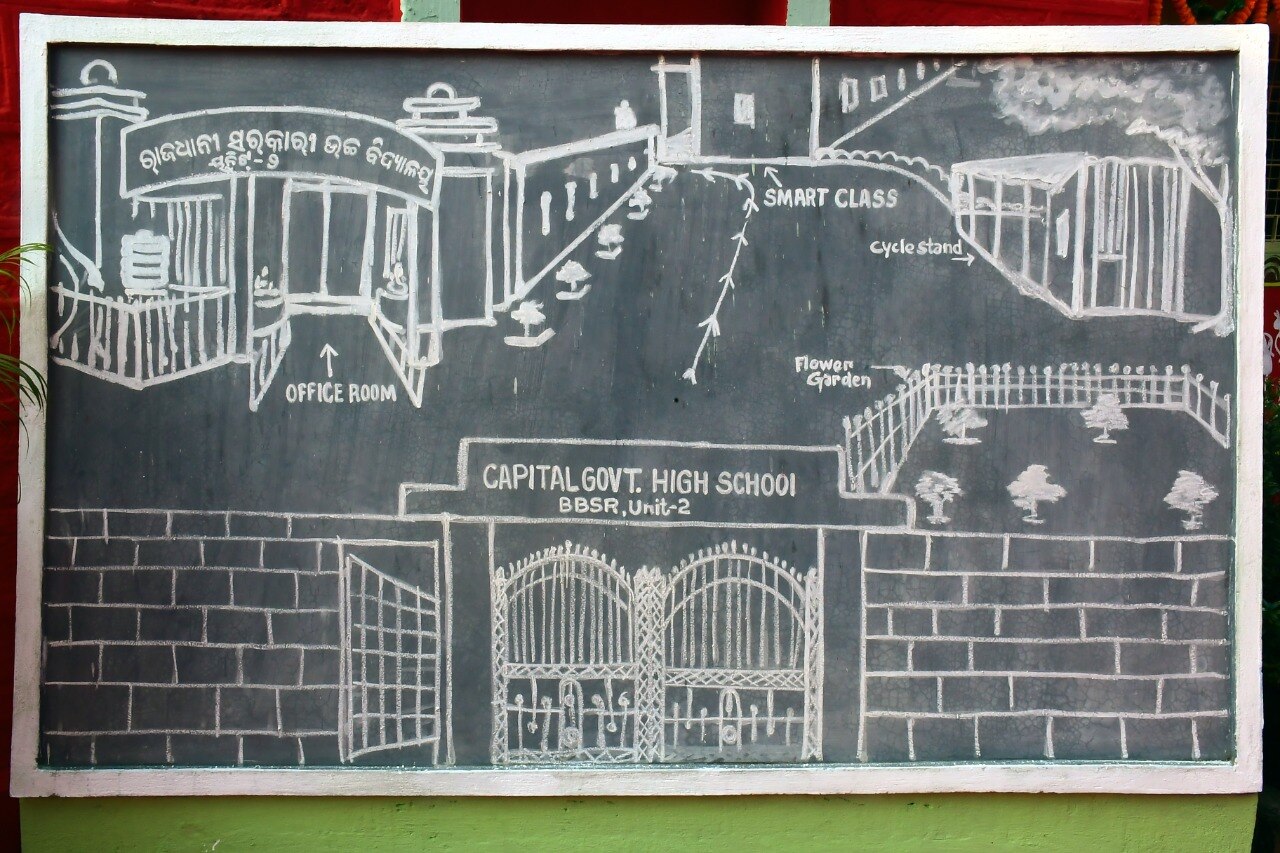 ରାଜଧାନୀ ସରକାରୀ ଉଚ୍ଚ ବିଦ୍ୟାଳୟ
ୟୁନିଟ୍ - ୨
SMART CLASS
cycle stand
OFFICE ROOM
Flower
Garden
CAPITAL GOVT. HIGH SCHOOl
BBSR, Unit-2